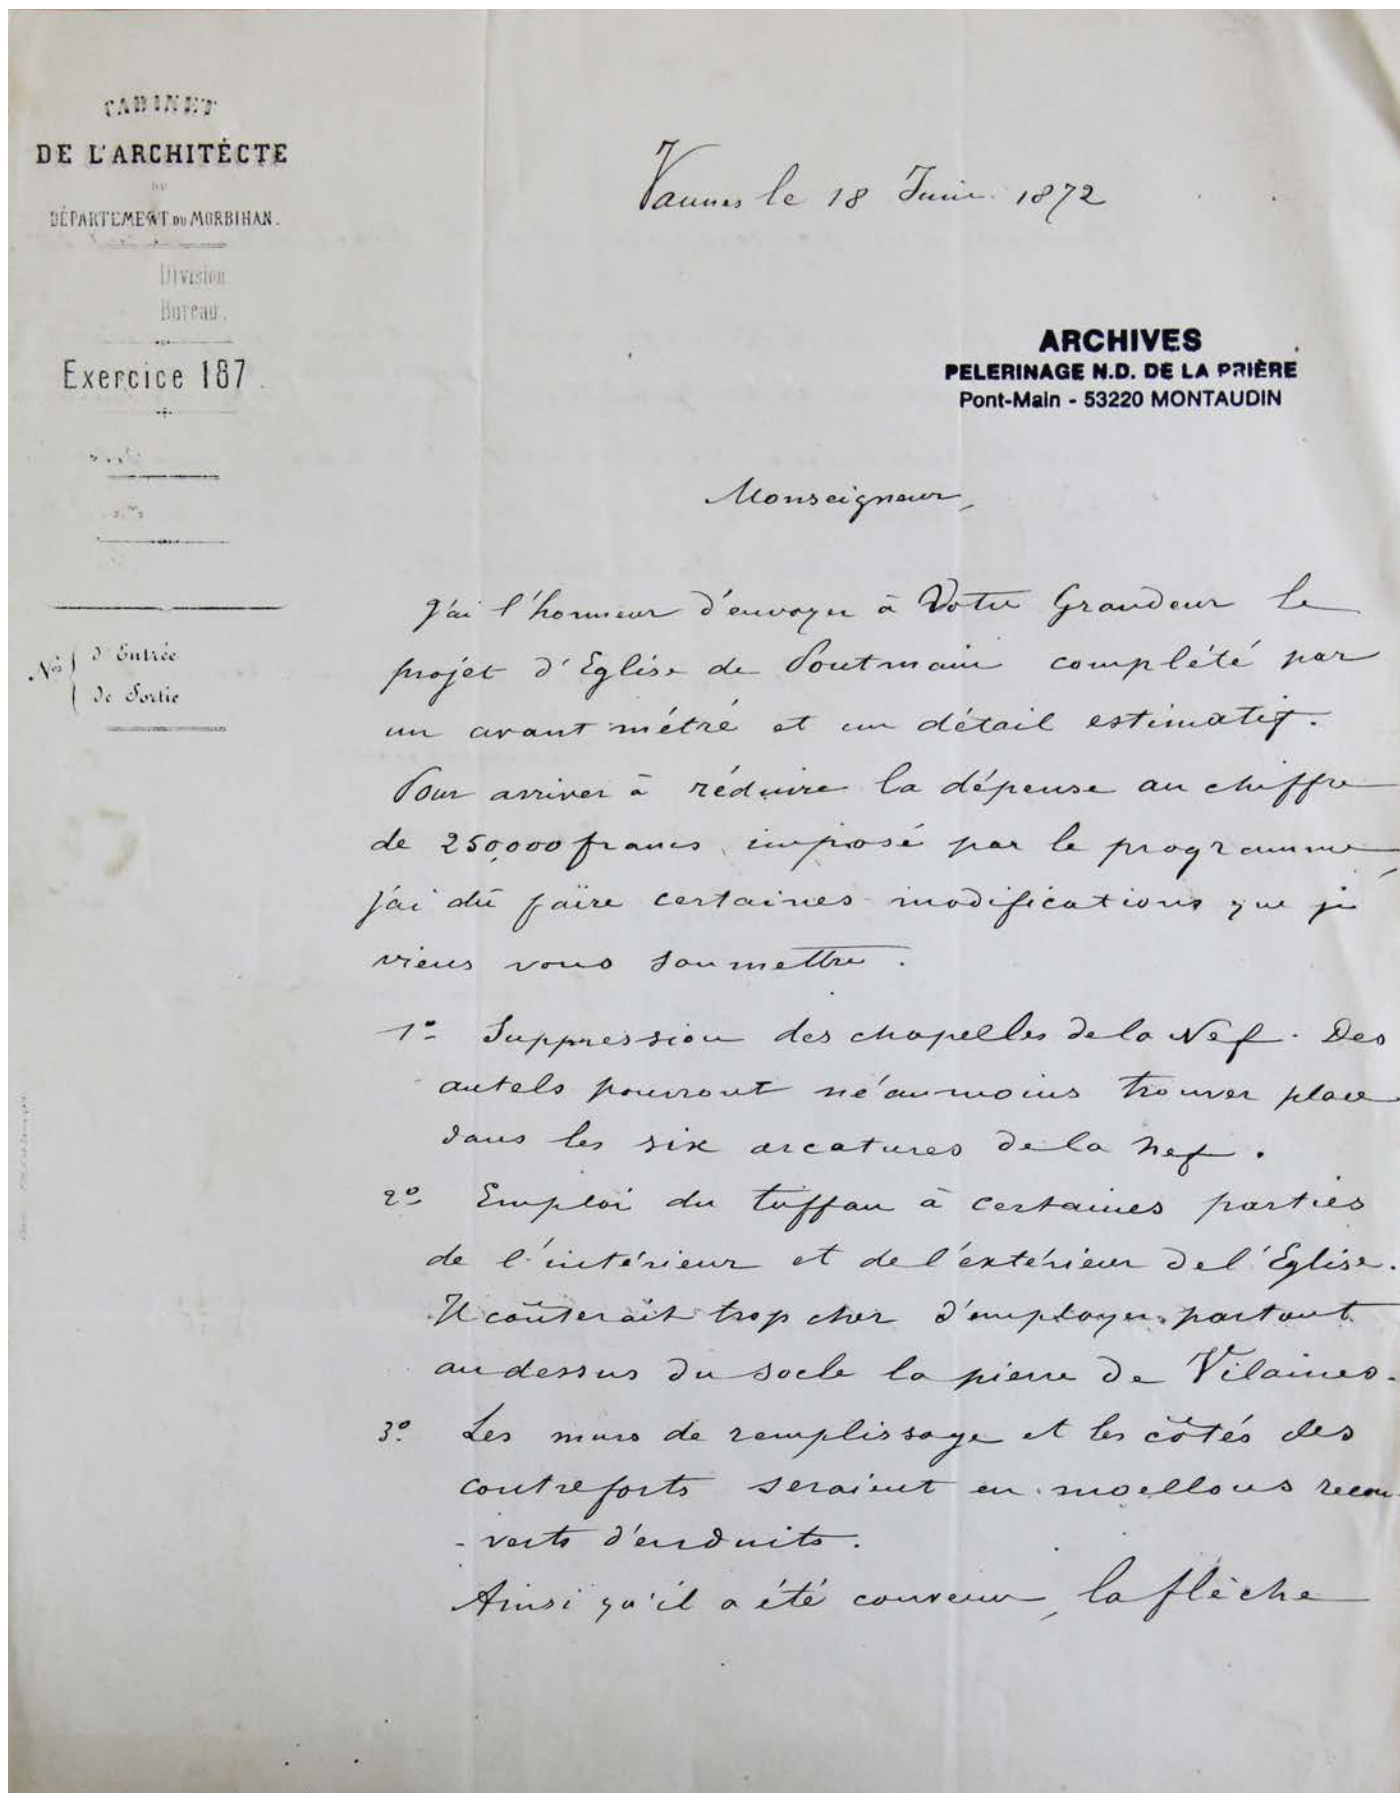 CABINET
DE L'ARCHITÉCTE
DU
DÉPARTEMENT DU MORBIHAN.
Division
Bureau.
Exercice 187 .
Nos d'Entrée
de Sortie
Vannes le 18 Juin 1872
ARCHIVES
PELERINAGE N.D. DE LA PRIÈRE
Pont-Main - 53220 MONTAUDIN
Monseigneur,
J'ai l'honneur d'envoyer à Votre Grandeur le
projet d'Eglise de Pontmain complété par
un avant métré et un détail estimatif.
Pour arriver à réduire la dépense au chiffre
de 250,000 francs imposé par le programme,
j'ai dû faire certaines modifications que je
viens vous soumettre.
1º Suppression des chapelles de la Nef. Des
autels pourront néanmoins trouver place
dans les six arcatures de la nef.
2º Emploi du tuffau à certaines parties
de l'intérieur et de l'extérieur de l'Eglise.
Il coûterait trop cher d'employer partout
au dessus du socle la pierre de Vilaines.
3º Les murs de remplissage et les côtés des
contreforts seraient en moellons recou-
-verts d'enduits.
Ainsi qu'il a été convenu, la flèche